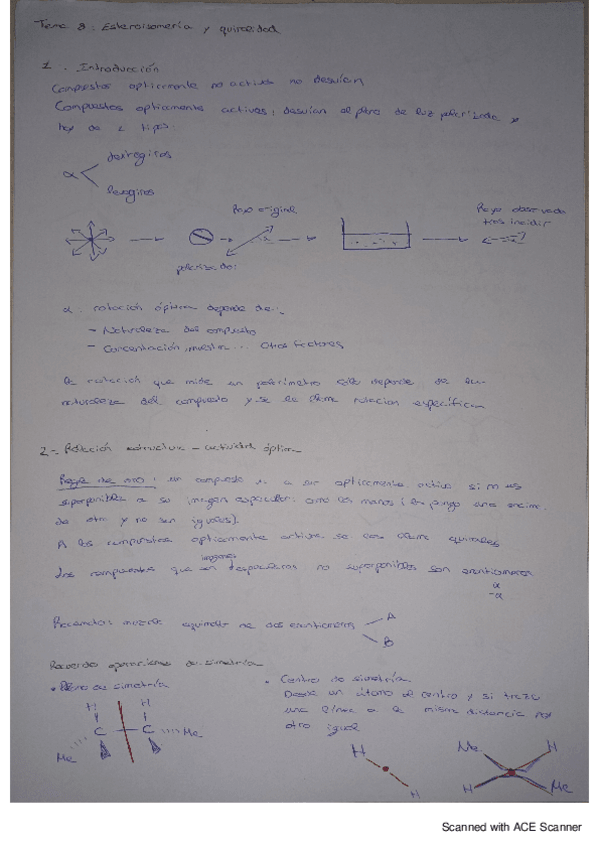 Tema 8: Esteroisomería y quiralidad
1. Introducción
Compuestos opticamente no activos no desvían
Compuestos opticamente activos, desvían el plano de luz polarizada y
hay de 2 tipos:
dextrogiros
α
levogiros
Rayo original
Rayo observado
tras incidir
polarizador
α: rotación óptica depende de:
- Naturaleza del compuesto
- Concentración, muestra... Otros factores
la rotación que mide un polarímetro solo depende de la
naturaleza del compuesto y se le llama rotacion específica
2- Relación estructura - actividad óptica
Regla de oro: un compuesto va a ser opticamente activo si no es
superponible a su imagen especular. como las manos (las pongo una encima
de otra y no son iguales).
A los compuestos opticamente activos se les llama quirales
imagenes
Los compuestos que son especulares no superponibles son enantiomeros
α
-α
Racemato: mezcla equimolar de dos enantiomeros
A
B
Recuerdo operaciones de simetría
• Plano de simetría
• Centro de simetría
Desde un átomo al centro y si trazo
una línea a la misma distancia hay
otro igual
H H
C C
Me Me
H
H
Me H
H Me
Scanned with ACE Scanner